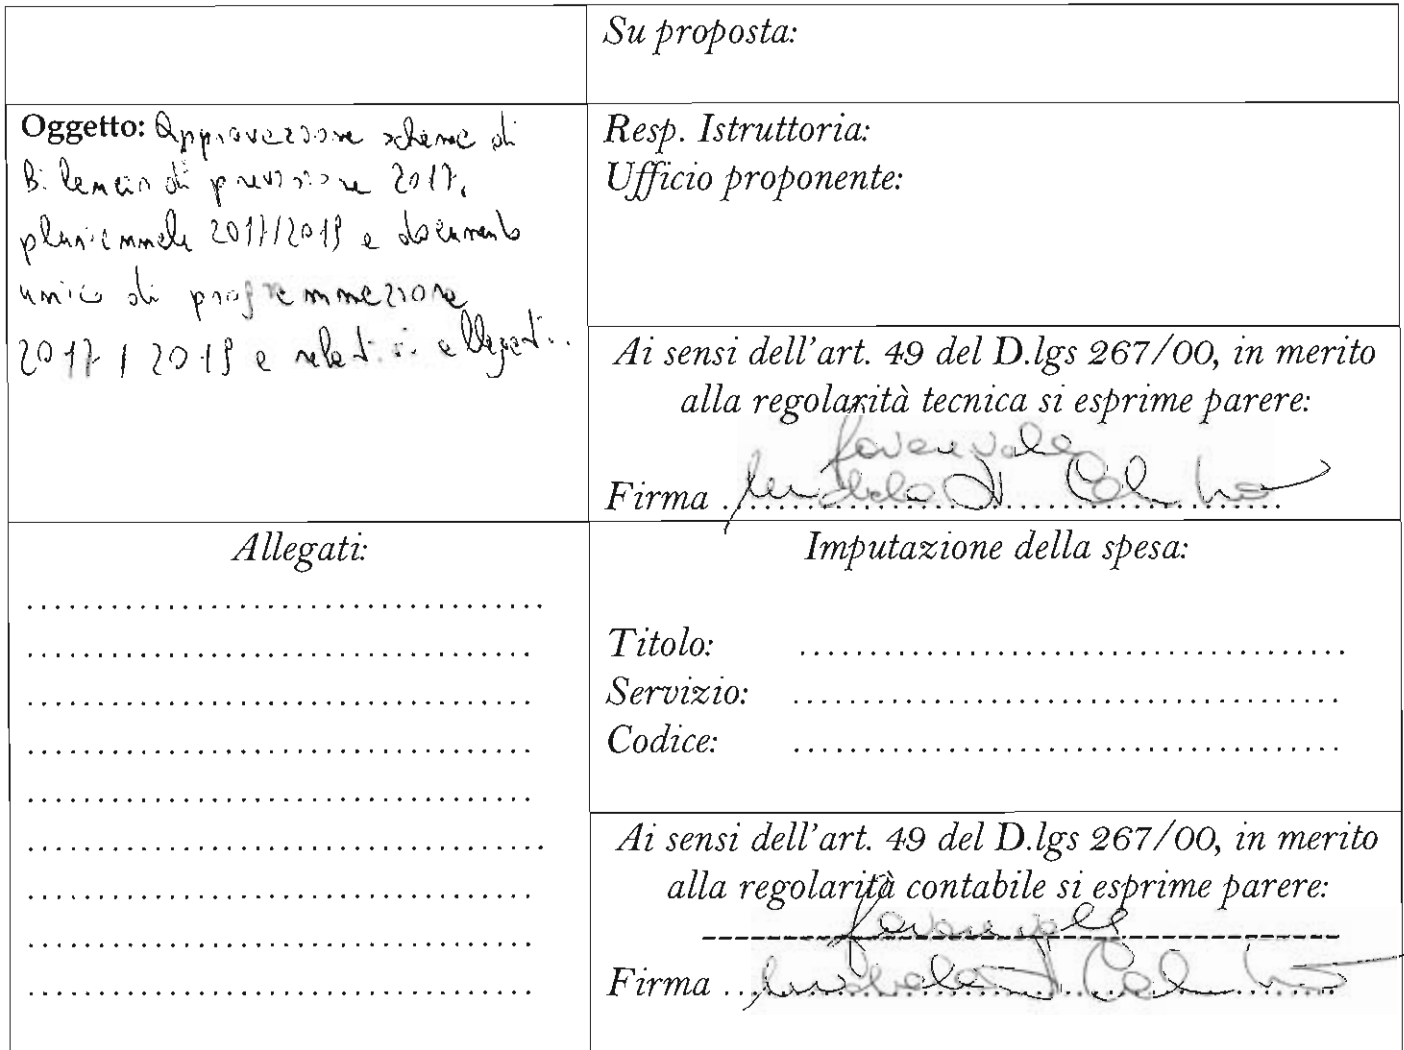 Su proposta:
Oggetto: Approvazione schema di
Bilancio di previsione 2017,
pluriennale 2017/2019 e documento
unico di programmazione
2017/2019 e relativi allegati.
Resp. Istruttoria:
Ufficio proponente:
Ai sensi dell'art. 49 del D.lgs 267/00, in merito
alla regolarità tecnica si esprime parere:
favorevole
Firma
Allegati:
Imputazione della spesa:
Titolo:
Servizio:
Codice:
Ai sensi dell'art. 49 del D.lgs 267/00, in merito
alla regolarità contabile si esprime parere:
favorevole
Firma